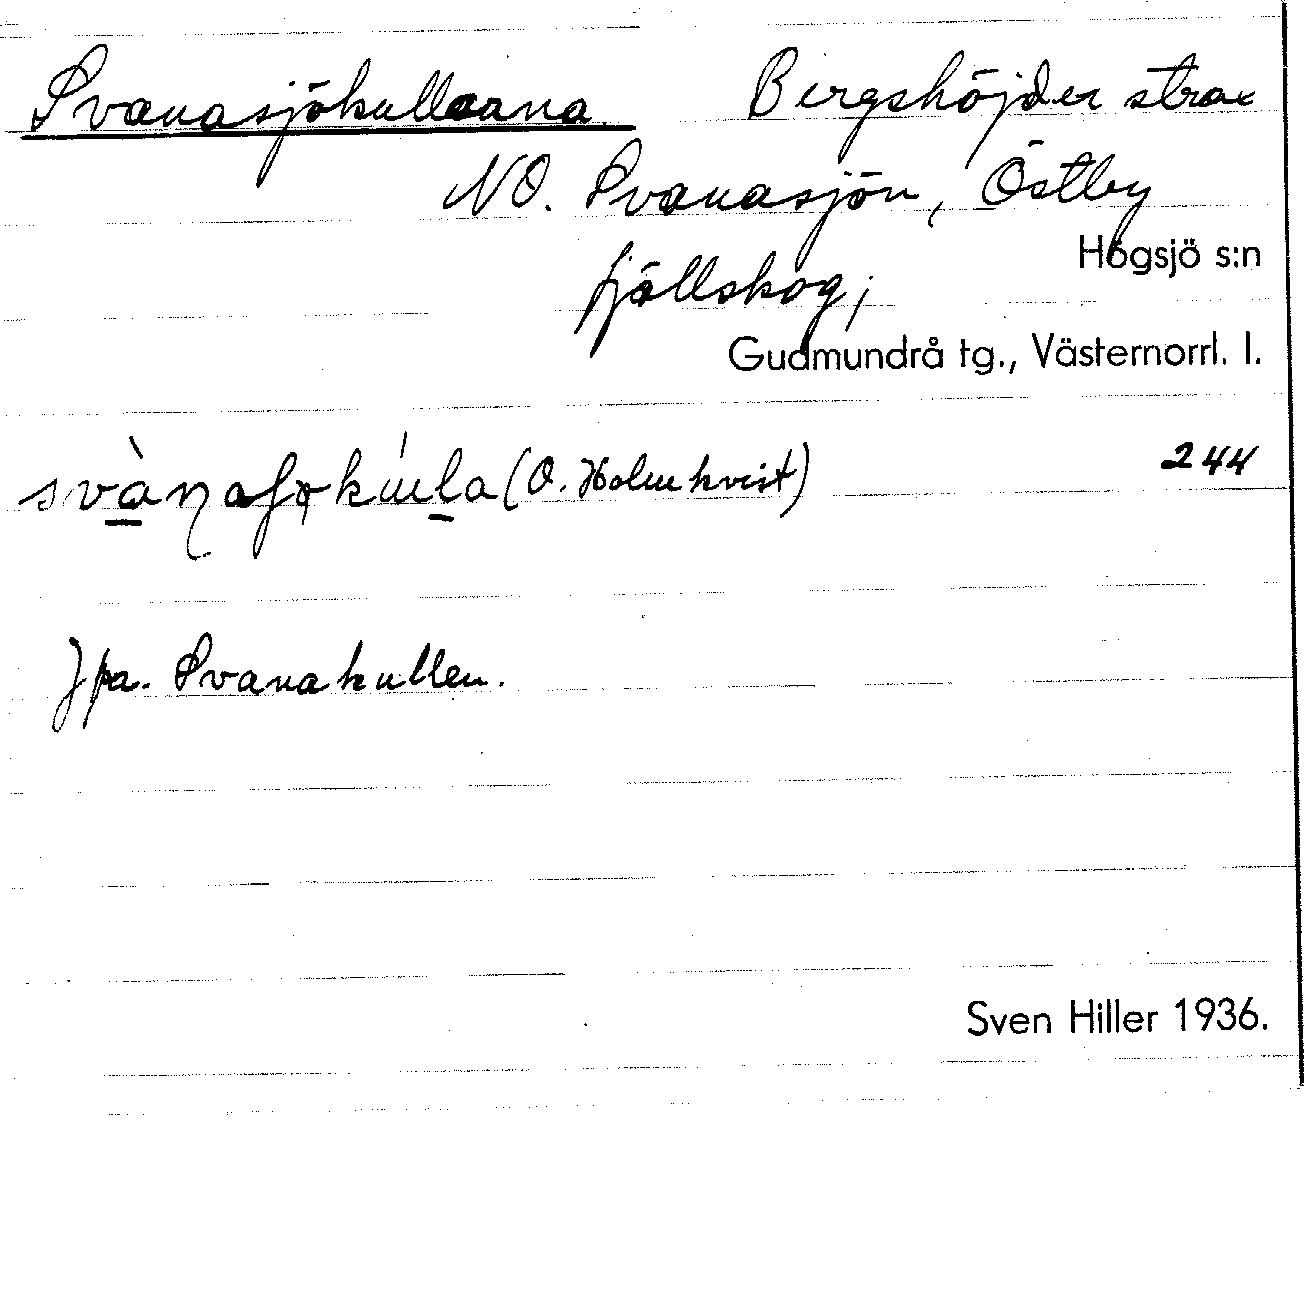 Svanasjökullarna. Bergshöjder strax
NO. Svanasjön, Östby
fjällskog;
Högsjö s:n
Gudmundrå tg., Västernorrl. l.
(O. Holmkvist) 244
Jpa. Svanakullen.
Sven Hiller 1936.